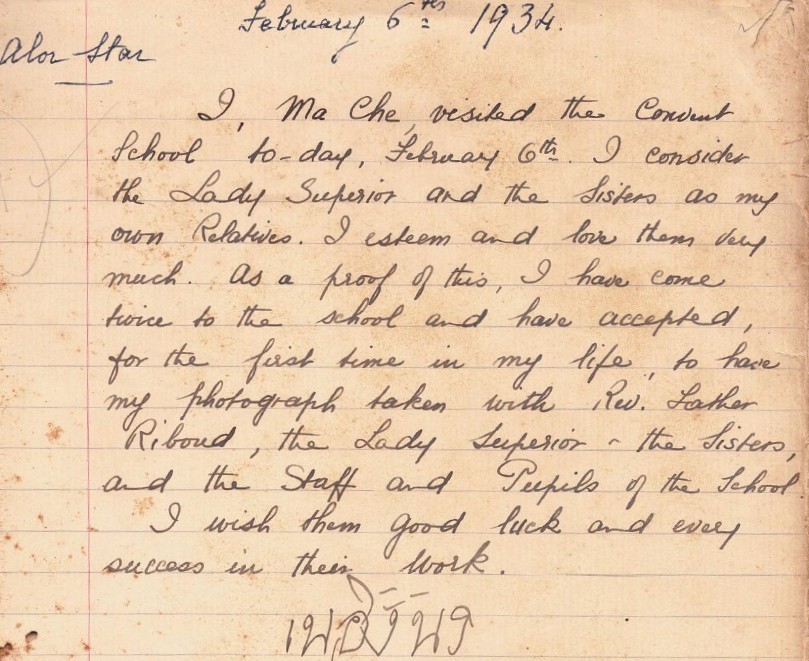 February 6th 1934.
Alor Star
I, Ma Che, visited the Convent
School to-day, February 6th. I consider
the Lady Superior and the Sisters as my
own Relatives. I esteem and love them very
much. As a proof of this, I have come
twice to the school and have accepted,
for the first time in my life, to have
my photograph taken with Rev. Father
Riboud, the Lady Superior - the Sisters,
and the Staff and Pupils of the School.
I wish them good luck and every
success in their work.